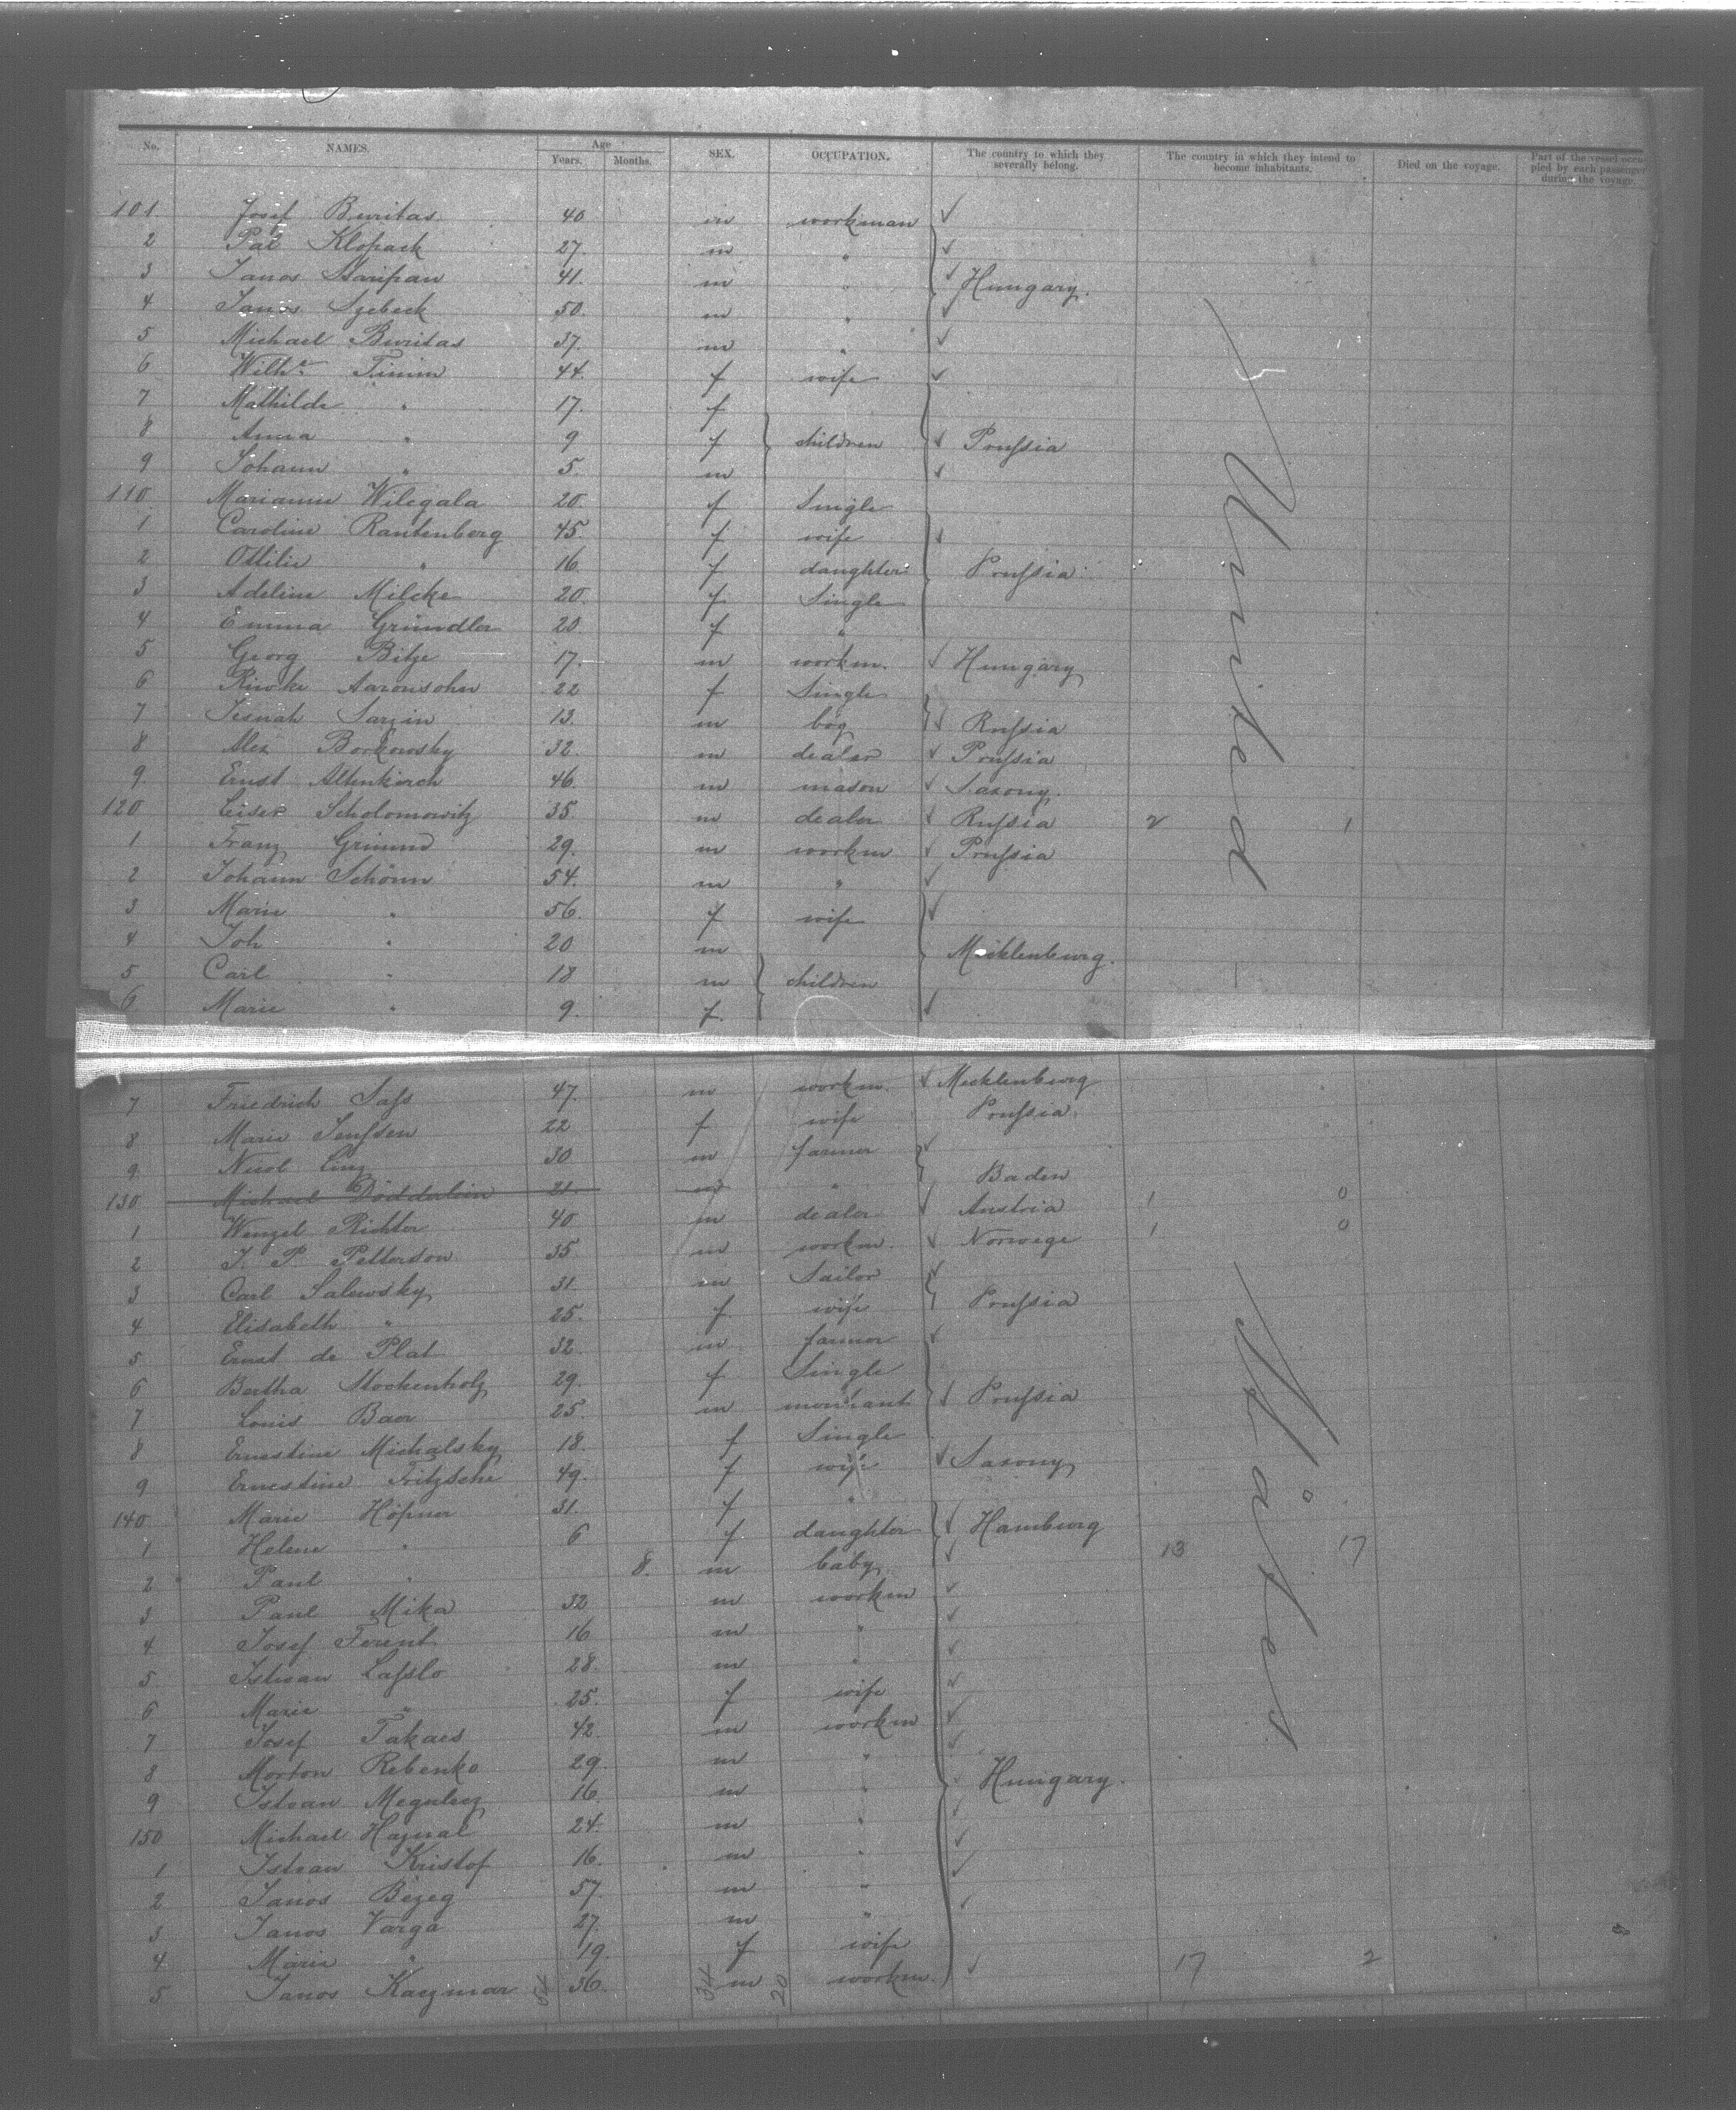 No. NAMES. Age Years. Months. SEX. OCCUPATION. The country to which they severally belong. The country in which they intend to become inhabitants. Died on the voyage. Part of the vessel occupied by each passenger during the voyage.
101. Josef Buritas 40 m workman
2 Pal Klopack 27. m "
3 Janos 41. m " Hungary.
4 Janos Szebeck 50. m "
5 Michael Buritas 37. m "
6 Wilhe. Timm 44. f wife
7 Mathilde " 17. f
8 Anna " 9 f children Prussia
9 Johann " 5. m
110. Marianne Wilegala 20. f Single
1 Caroline Rautenberg 45. f wife
2 Ottilie " 16. f daughter Prussia
3 Adeline Milcke 20. f Single
4 Emma Gründler 20. f "
5 Georg Bitze 17. m workm. Hungary
6 Riwke Aaronsohn 22 f Single
7 Sarzin 13. m boy Russia
8 Alex Borkowsky 32. m dealer Prussia
9. Ernst Altenkirch 46. m mason Saxony.
120 Leiser Scholomowitz 35. m dealer Russia 2 1
1 Franz Grimm 29. m workm Prussia
2 Johann Schönn 54. m "
3 Marie " 56. f wife
4 Joh " 20 m Mecklenburg.
5 Carl " 18 m children
6 Marie " 9. f.
7 Friedrich Sass 47. m workm. Mecklenburg
8 Marie Jenssen 22 f wife Prussia.
9. Nicol Linz 30 m farmer
130 Michael Dödderlein 21. m " Baden
1 Wenzel Richter 40 m dealer Austria 1 0
2 J. P. Petterson 35. m workm. Norwege 1 0
3 Carl Salewsky 31. m Sailor
4 Elisabeth " 25. f wife Prussia
5 Ernst de Plat 32 m farmer
6 Bertha Stockenholz 29. f Single
7 Louis Baer 25. m Prussia
8 Ernestine Michalsky 18. f Single
9 Ernestine Fritzsche 49. f wife Saxony
140 Marie Höpner 31. f "
1 Helene " 6 f daughter Hamburg
2 Paul " 8. m baby 13 17
3 Paul Mika 32 m workm
4 Josef Ferent 16 m "
5 Istvan Lasslo 28. m "
6 Marie " 25. f wife
7 Josef Takacs 42 m workm
8 Morton Rebenko 29. m "
9 Istvan 16. m " Hungary.
150 Michael Hajnal 24. m "
1 Istvan Kristof 16. m "
2 Janos Bezeg 57. m "
3 Janos Varga 27. m "
4 Marie " 19. f wife
5 Janos Kaczmar 36. m workm. 17 2
54 34 20
United
States